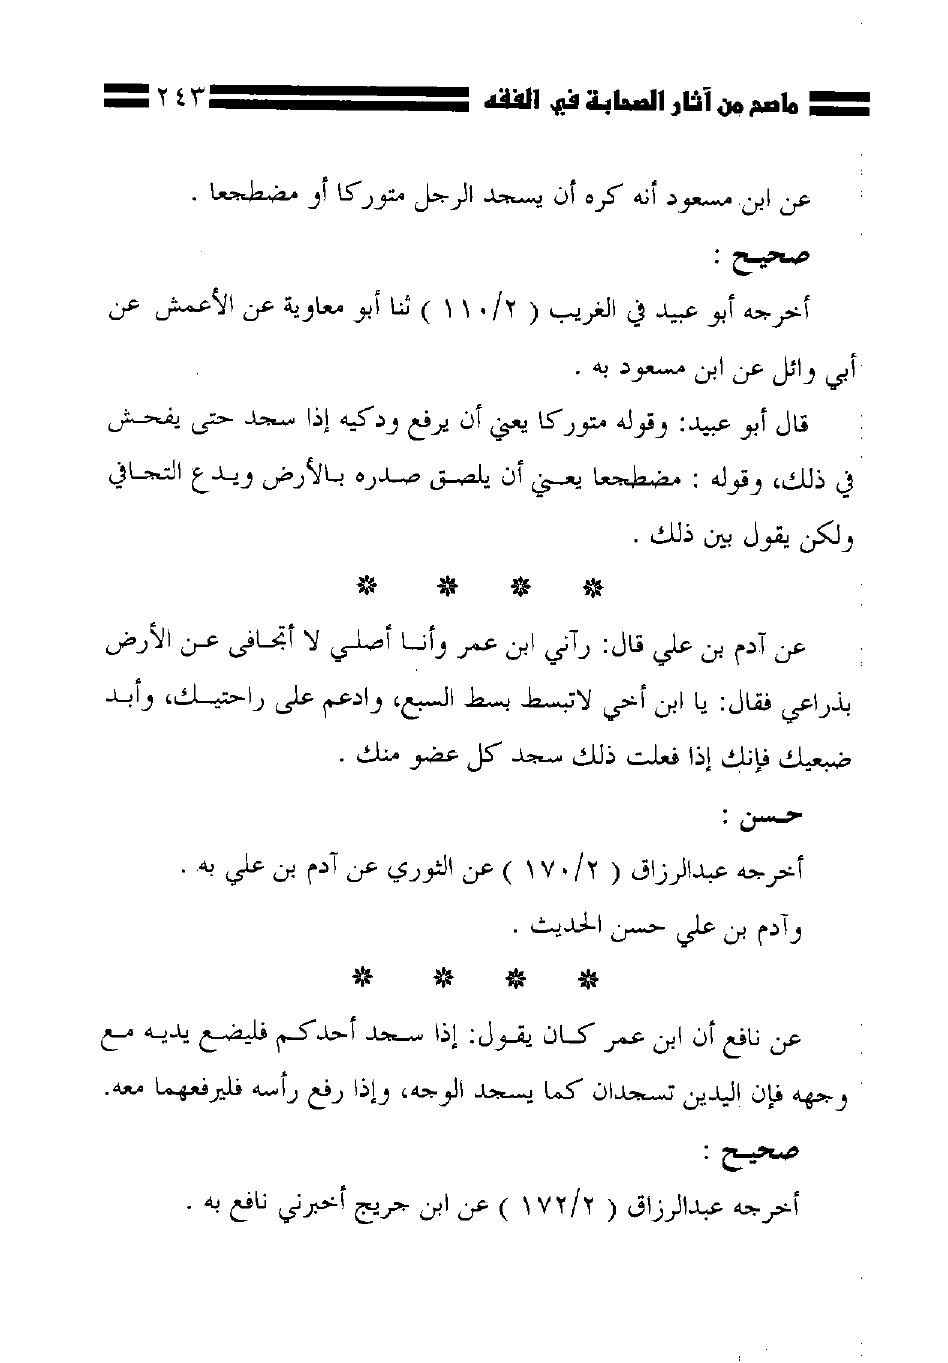 ماصح من آثار الصحابة في الفقه ٢٤٣
عن ابن مسعود أنه كره أن يسجد الرجل متوركا أو مضطجعا .
صحيح :
أخرجه أبو عبيد في الغريب ( ١١٠/٢ ) ثنا أبو معاوية عن الأعمش عن
أبي وائل عن ابن مسعود به .
قال أبو عبيد: وقوله متوركا يعني أن يرفع ودكيه إذا سجد حتى يفحش
في ذلك، وقوله : مضطجعا يعني أن يلصق صدره بالأرض ويدع التجافي
ولكن يقول بين ذلك .
* * * *
عن آدم بن علي قال: رآني ابن عمر وأنا أصلي لا أتجافى عن الأرض
بذراعي فقال: يا ابن أخي لاتبسط بسط السبع، وادعم على راحتيك، وأبد
ضبعيك فإنك إذا فعلت ذلك سجد كل عضو منك .
حسن :
أخرجه عبدالرزاق ( ١٧٠/٢ ) عن الثوري عن آدم بن علي به .
وآدم بن علي حسن الحديث .
* * * *
عن نافع أن ابن عمر كان يقول: إذا سجد أحدكم فليضع يديه مع
وجهه فإن اليدين تسجدان كما يسجد الوجه، وإذا رفع رأسه فليرفعهما معه.
صحيح :
أخرجه عبدالرزاق ( ١٧٢/٢ ) عن ابن جريج أخبرني نافع به .